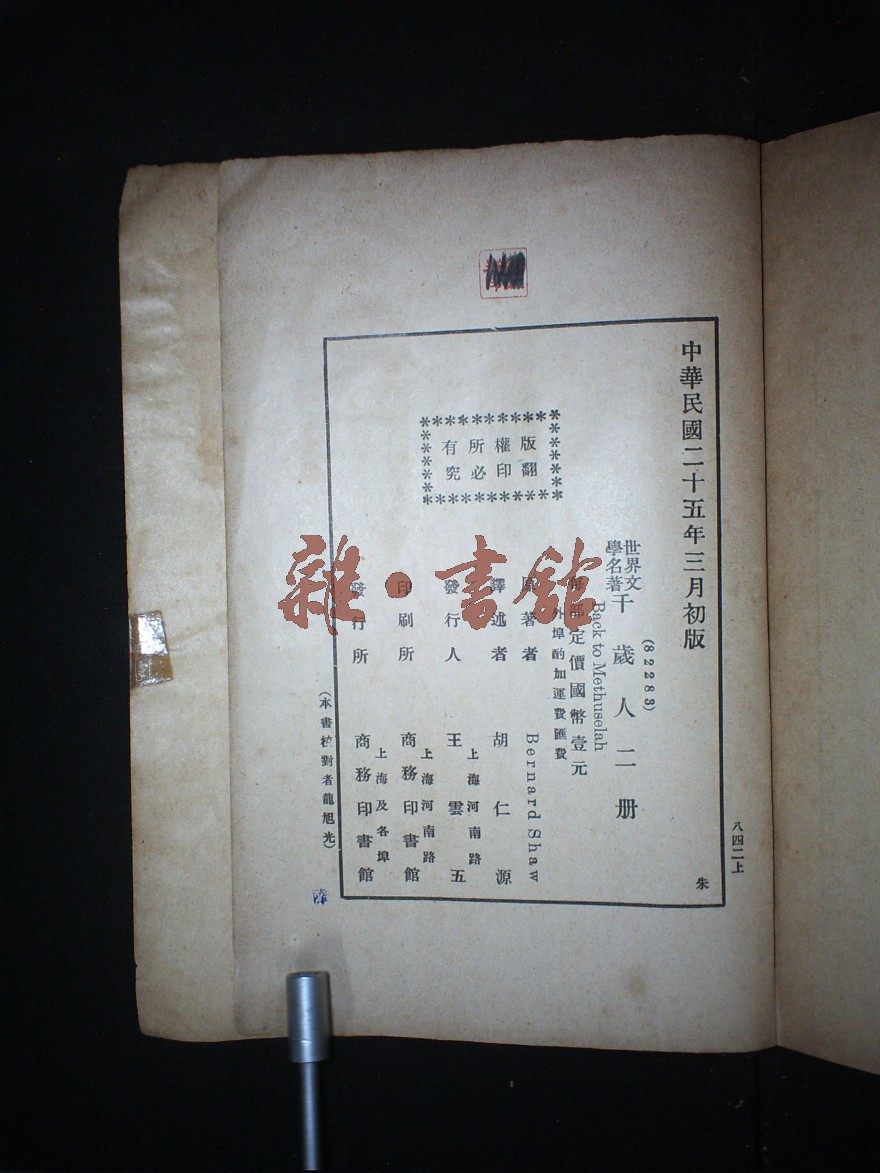 中華民國二十五年三月初版
(82283)
世界文學名著
千歲人二册
Back to Methuselah
每部定價國幣壹元
外埠酌加運費匯費
原著者 Bernard Shaw
譯述者 胡仁源
發行人 王雲五
上海河南路
印刷所 商務印書館
上海河南路
發行所 商務印書館
上海及各埠
版權所有
翻印必究
(本書校對者龍旭光)
八四二上
朱
雜·書館